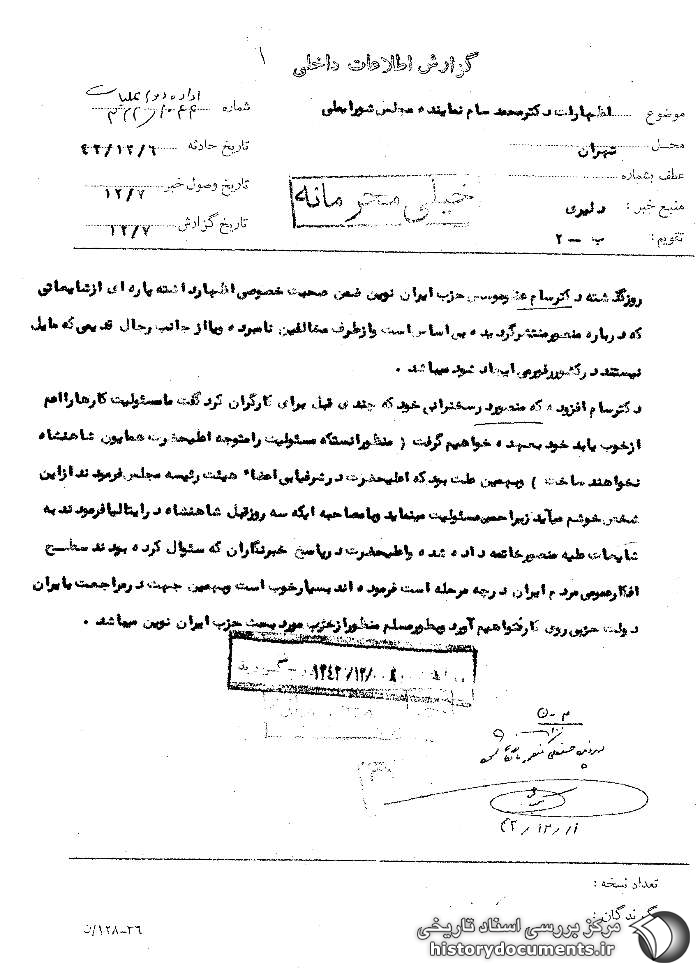 گزارش اطلاعات داخلی
۱
موضوع : اظهارات دکتر محمد سام نماینده مجلس شورایملی
محل : تهران
عطف بشماره :
منبع خبر : دلیری
تقویم : ب - ۲
شماره
اداره دوم عملیات
تاریخ حادثه ۴۲/۱۲/۶
تاریخ وصول خبر ۱۲/۷
تاریخ گزارش ۱۲/۷
خیلی محرمانه
روز گذشته دکتر سام عضو موسس حزب ایران نوین ضمن صحبت خصوصی اظهار داشته پاره ای از شایعاتی
که درباره منصور منتشر گردیده بی اساس است و از طرف مخالفین نامبرده و یا از جانب رجال قدیمی که مایل
نیستند در کشور رفرمی ایجاد شود میباشد .
دکتر سام افزوده که منصور در سخنرانی خود که چندی قبل برای کارگران کرد گفت ما مسئولیت کارها را اعم
از خوب یا بد خود بعهده خواهیم گرفت ( منظور اینستکه مسئولیت را متوجه اعلیحضرت همایون شاهنشاه
نخواهند ساخت ) و بهمین علت بود که اعلیحضرت در شرفیابی اعضاء هیئت رئیسه مجلس فرمودند از این
شخص خوشم میآید زیرا حس مسئولیت مینماید و با مصاحبه ایکه سه روز قبل شاهنشاه در ایتالیا فرمودند به
شایعات علیه منصور خاتمه داده شده و اعلیحضرت در پاسخ خبرنگاران که سئوال کرده بودند سطح
افکار عمومی مردم ایران در چه مرحله است فرموده اند بسیار خوب است و بهمین جهت در مراجعت بایران
دولت حزبی روی کار خواهیم آورد و بطور مسلم منظور از حزب مورد بحث حزب ایران نوین میباشد .
م - ن
تعداد نسخه :
گیرندگان :
۱۲۸-۲۶/ت
مرکز بررسی اسناد تاریخی
historydocuments.ir